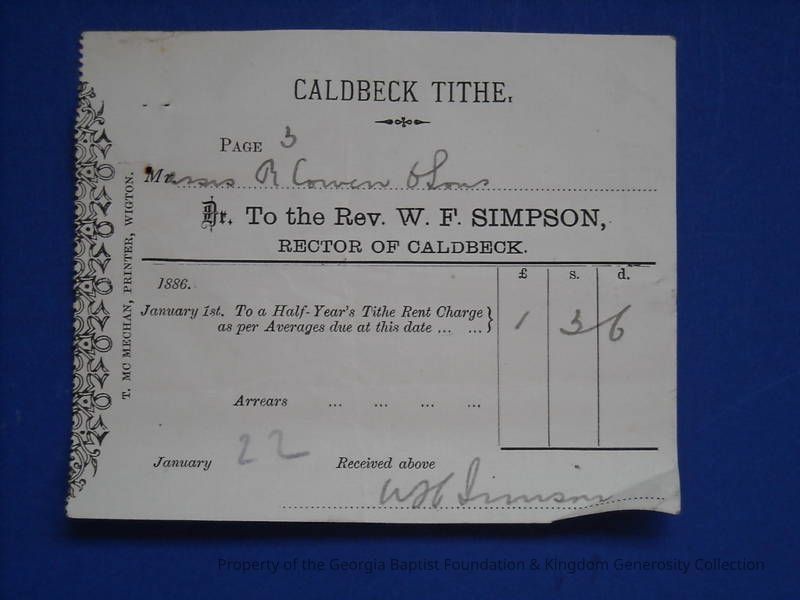 CALDBECK TITHE.
PAGE 3
Messrs R Cowen & Sons
Dr. To the Rev. W. F. SIMPSON,
RECTOR OF CALDBECK.
£ s. d.
1886.
January 1st. To a Half-Year's Tithe Rent Charge
as per Averages due at this date ... ... } 1 3 6
Arrears ... ... ... ...
January 22 Received above
W F Simpson
T. MC MECHAN, PRINTER, WIGTON.
Property of the Georgia Baptist Foundation & Kingdom Generosity Collection